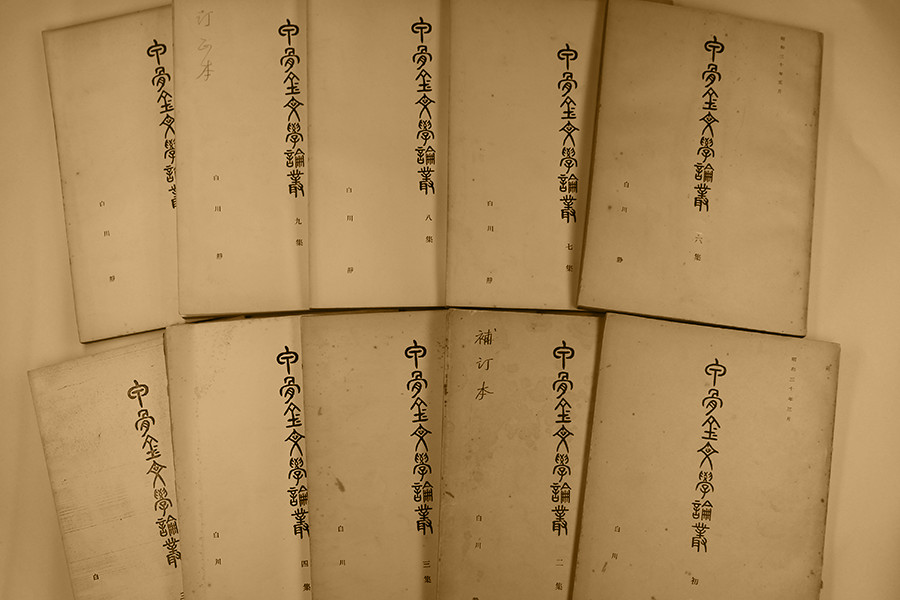 昭和三十年五月
甲骨金文學論叢
六集
白川 静
甲骨金文學論叢
七集
白川 静
甲骨金文學論叢
八集
白川 静
訂正本
甲骨金文學論叢
九集
白川 静
甲骨金文學論叢
白川 静
昭和三十年三月
甲骨金文學論叢
初
白川
補訂本
甲骨金文學論叢
二集
白川
甲骨金文學論叢
三集
白川
甲骨金文學論叢
四集
白川
甲骨金文學論叢
白